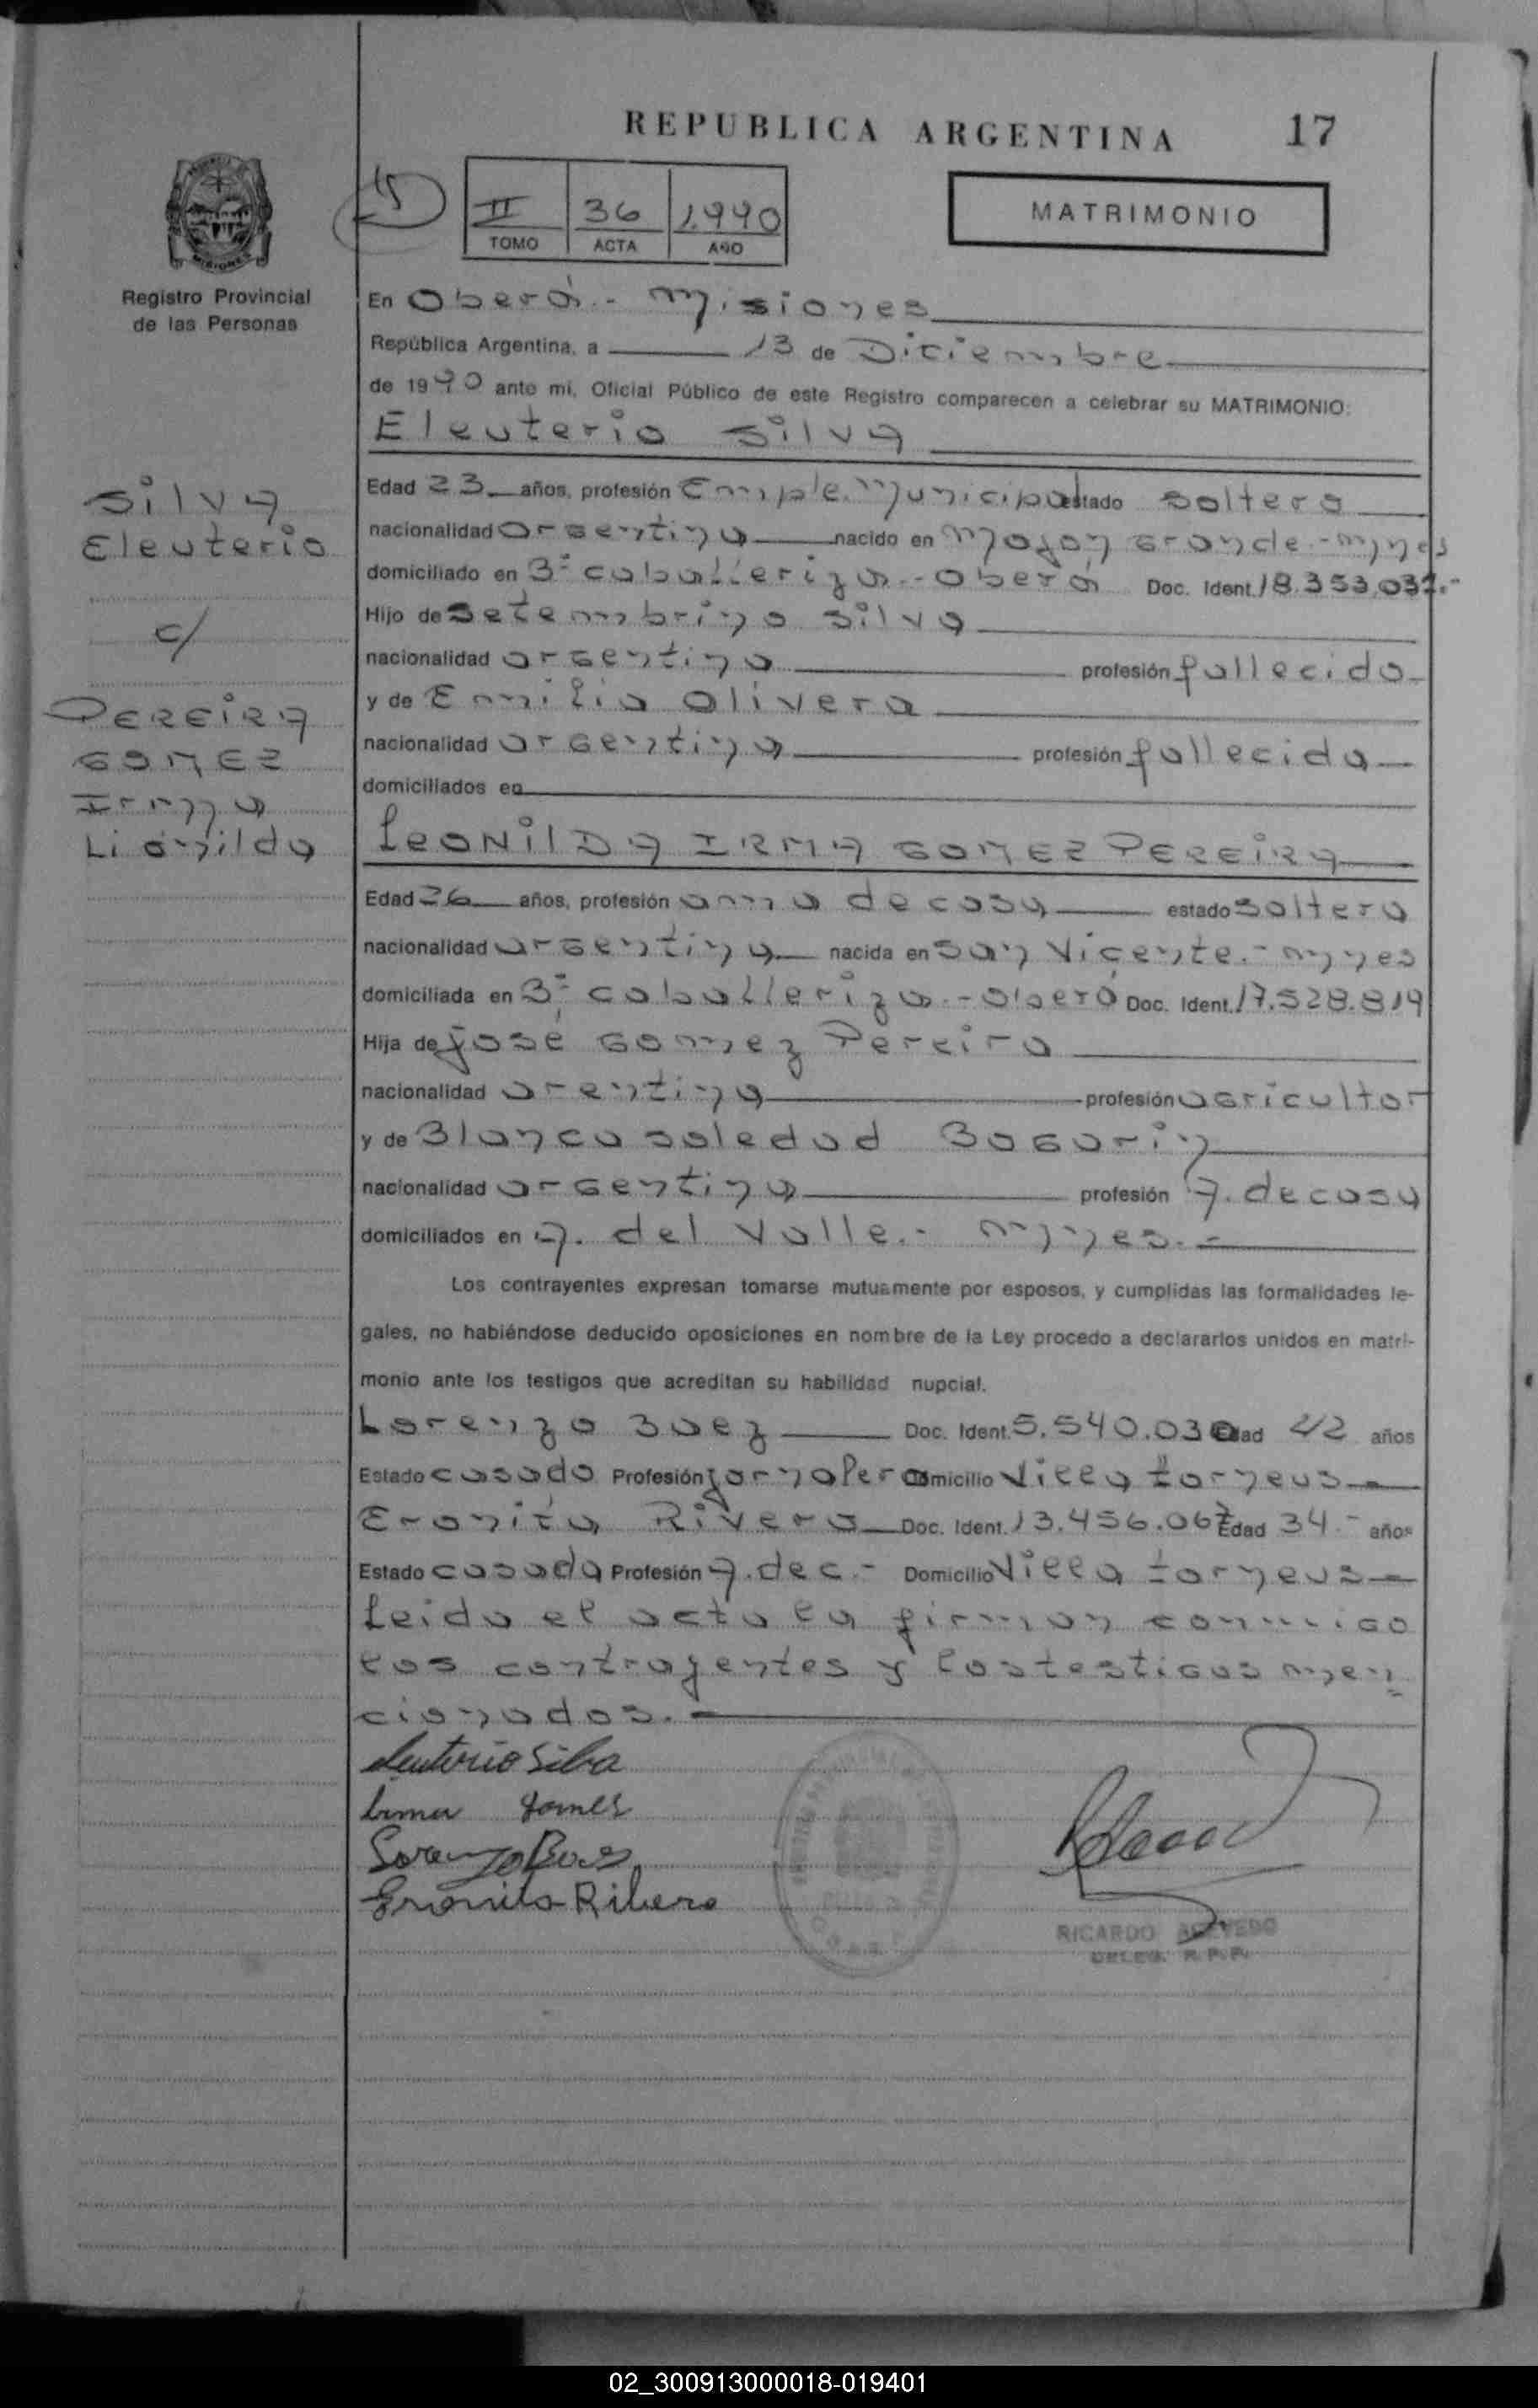 REPUBLICA ARGENTINA 17
II 36 1.990
TOMO ACTA AÑO
MATRIMONIO
Registro Provincial
de las Personas
En Oberá.- Misiones
República Argentina, a 13 de Diciembre
de 1990 ante mi, Oficial Público de este Registro comparecen a celebrar su MATRIMONIO:
Eleuterio Silva
Silva
Eleuterio
c/
PEREIRA
GOMEZ
Irma
Lionilda
Edad 23 años, profesión Emple. Municipal estado soltero
nacionalidad argentina nacido en Mojon Grande.-Mnes
domiciliado en 3º caballeriza.-Oberá Doc. Ident. 18.353.031.-
Hijo de Setembrino Silva
nacionalidad argentina profesión fallecido
y de Emilia Olivera
nacionalidad argentina profesión fallecida
domiciliados en
LEONILDA IRMA GOMEZ PEREIRA
Edad 26 años, profesión ama de casa estado soltera
nacionalidad argentina nacida en San Vicente.- Mnes
domiciliada en 3º caballeriza.-Oberá Doc. Ident. 17.528.819
Hija de José Gomez Pereira
nacionalidad arentina profesión agricultor
y de Blanca Soledad Bogarin
nacionalidad argentina profesión A. de casa
domiciliados en A. del Valle.- Mnes.-
Los contrayentes expresan tomarse mutuamente por esposos, y cumplidas las formalidades le-
gales, no habiéndose deducido oposiciones en nombre de la Ley procedo a declararlos unidos en matri-
monio ante los testigos que acreditan su habilidad nupcial.
Lorenzo Baez Doc. Ident. 5.540.030 Edad 42 años
Estado casado Profesión jornalero Domicilio Villa torneus
Eronita Rivero Doc. Ident. 13.456.067 Edad 34.- años
Estado casada Profesión A. de c.- Domicilio Villa torneus
Leida el acta la firman conmigo
los contrayentes y los testigos men
cionados.-
Eleuterio Silva
Irma Gomes
Lorenzo Baes
Eronita Ribero
RICARDO ACEVEDO
DELEG. R.P.P.
02_300913000018-019401